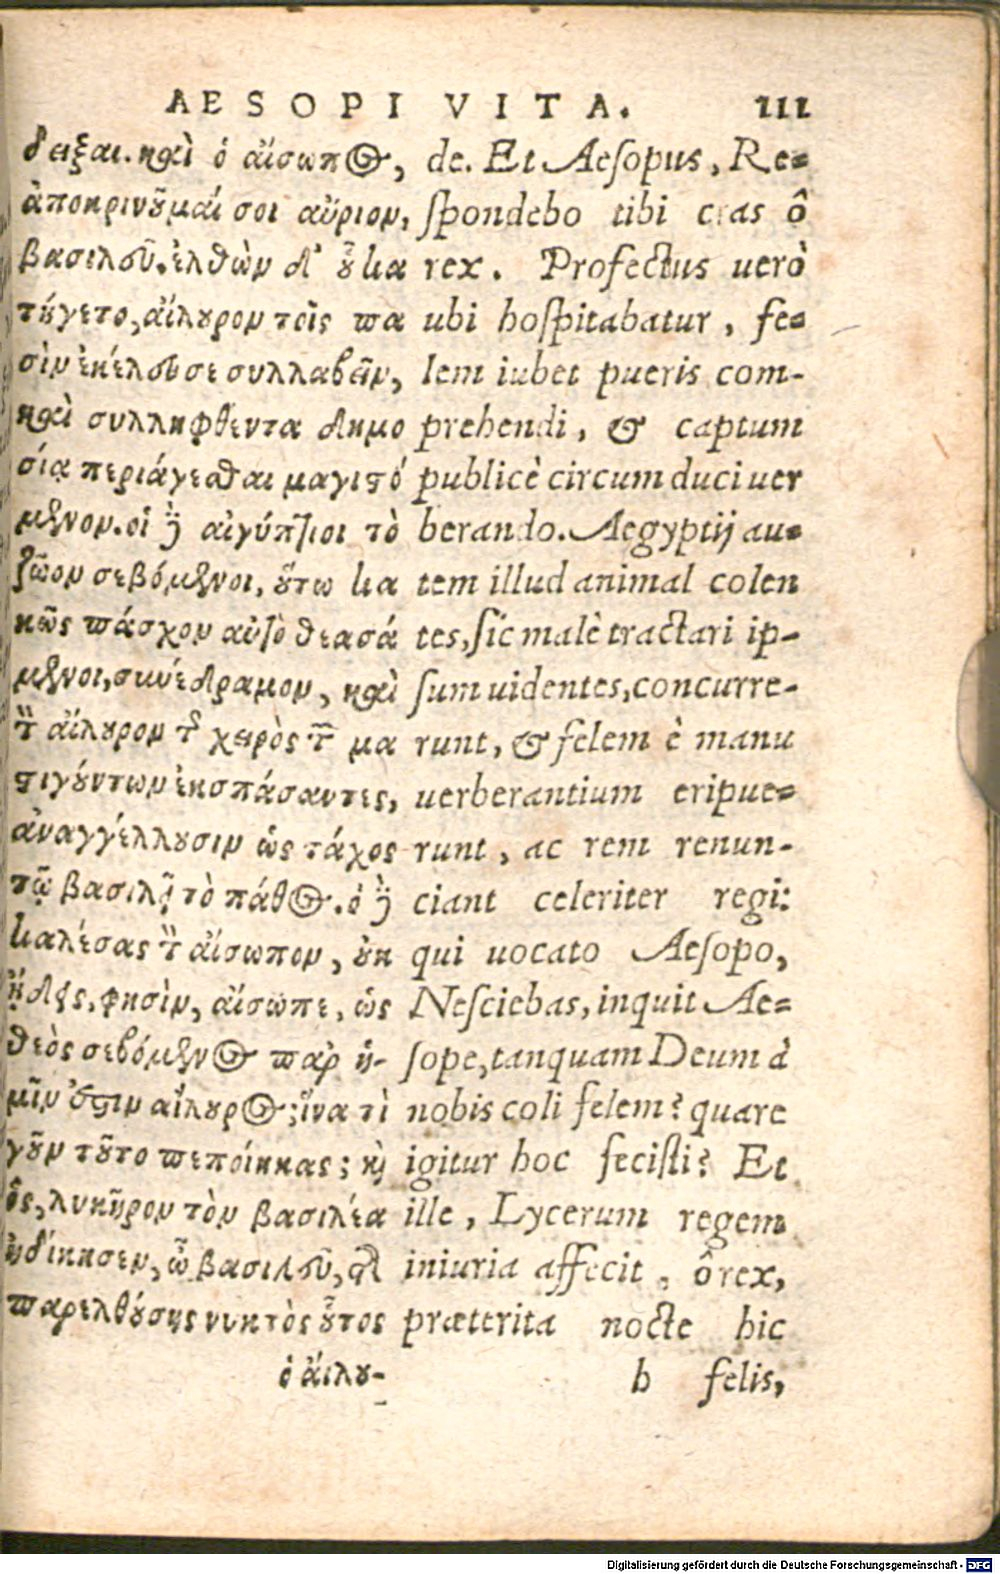 AESOPI VITA. 111
δειξαι. καὶ ὁ αἴσωπος,
ἀποκρινοῦμαί σοι αὔριον,
βασιλεῦ. ἐλθὼν δ' οὗ κα
τήγετο, αἴλουρον τοῖς πα
σὶν ἐκέλευσε συλλαβεῖν,
καὶ συλληφθέντα δημο
σίᾳ περιάγεσθαι μαστιγό
μενον. οἱ δὲ αἰγύπτιοι τὸ
ζῶον σεβόμενοι, οὕτω κα
κῶς πάσχον αὐτὸ θεασά
μενοι, συνέδραμον, καὶ
τὸν αἴλουρον τῆς χειρὸς τῶν μα
στιγούντων ἐκσπάσαντες,
ἀναγγέλλουσιν ὡς τάχος
τῷ βασιλεῖ τὸ πάθος. ὁ δὲ
καλέσας τὸν αἴσωπον, οὐκ
ᾔδεις, φησὶν, αἴσωπε, ὡς
θεὸς σεβόμενος παρ ἡ-
μῖν ἐστιν αἴλουρος; ἵνα τὶ
γοῦν τοῦτο πεποίηκας; καὶ
ὃς, λυκῆρον τὸν βασιλέα
ἠδίκησεν, ὦ βασιλεῦ, τῆς
παρελθούσης νυκτὸς οὗτος
ὁ αἴλου-
de. Et Aesopus, Re-
spondebo tibi cras ô
rex. Profectus uerò
ubi hospitabatur, fe-
lem iubet pueris com-
prehendi, & captum
publicè circum duci uer
berando. Aegyptij au-
tem illud animal colen
tes, sic malè tractari ip-
sum uidentes, concurre-
runt, & felem è manu
uerberantium eripue-
runt, ac rem renun-
ciant celeriter regi:
qui uocato Aesopo,
Nesciebas, inquit Ae-
sope, tanquam Deum à
nobis coli felem? quare
igitur hoc fecisti? Et
ille, Lycerum regem
iniuria affecit, ô rex,
præterita nocte hic
b felis,
Digitalisierung gefördert durch die Deutsche Forschungsgemeinschaft - DFG